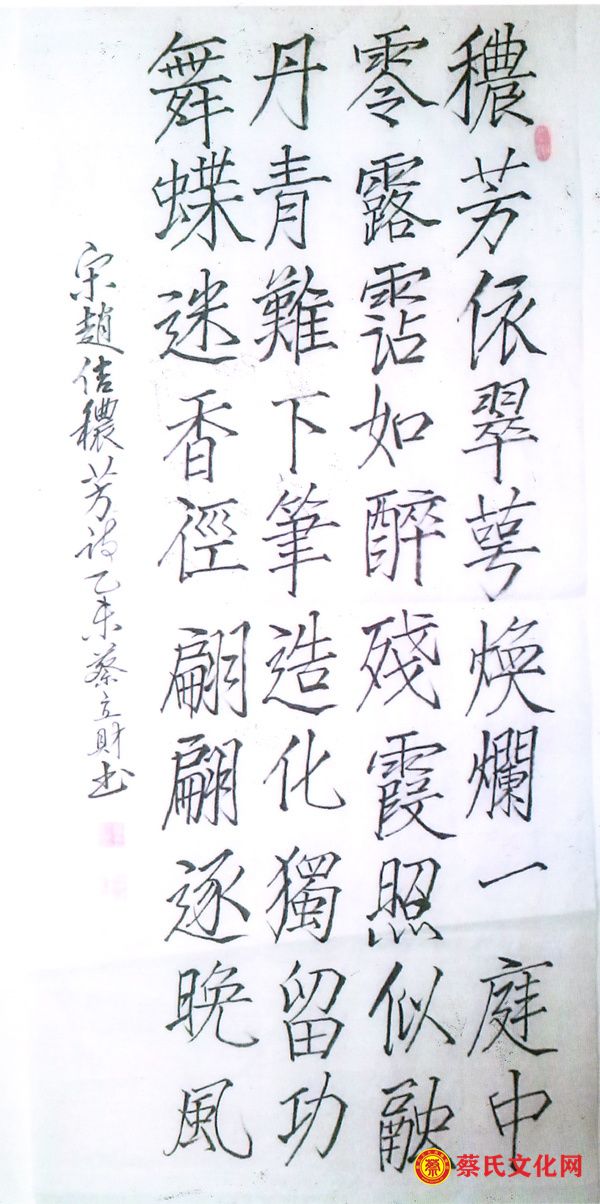 穠芳依翠萼煥爛一庭中
零露霑如醉殘霞照似融
丹青難下筆造化獨留功
舞蝶迷香徑翩翩逐晚風
宋趙佶穠芳詩乙未蔡立財书
蔡氏文化网